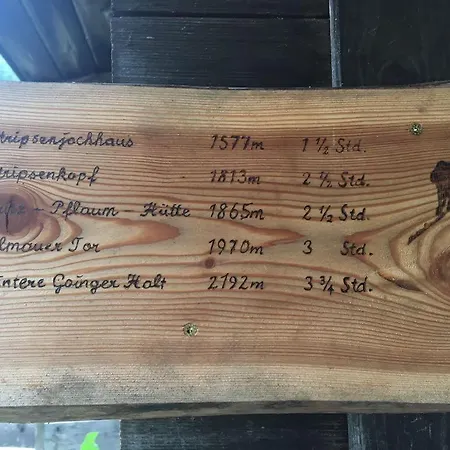 tripsenjochhaus 1577m 1 ½ Std.
tripsenkopf 1813m 2 ½ Std.
– Pflaum – Hütte 1865m 2 ½ Std.
lmauer Tor 1970m 3 Std.
intere Goinger Halt 2192m 3 ¾ Std.